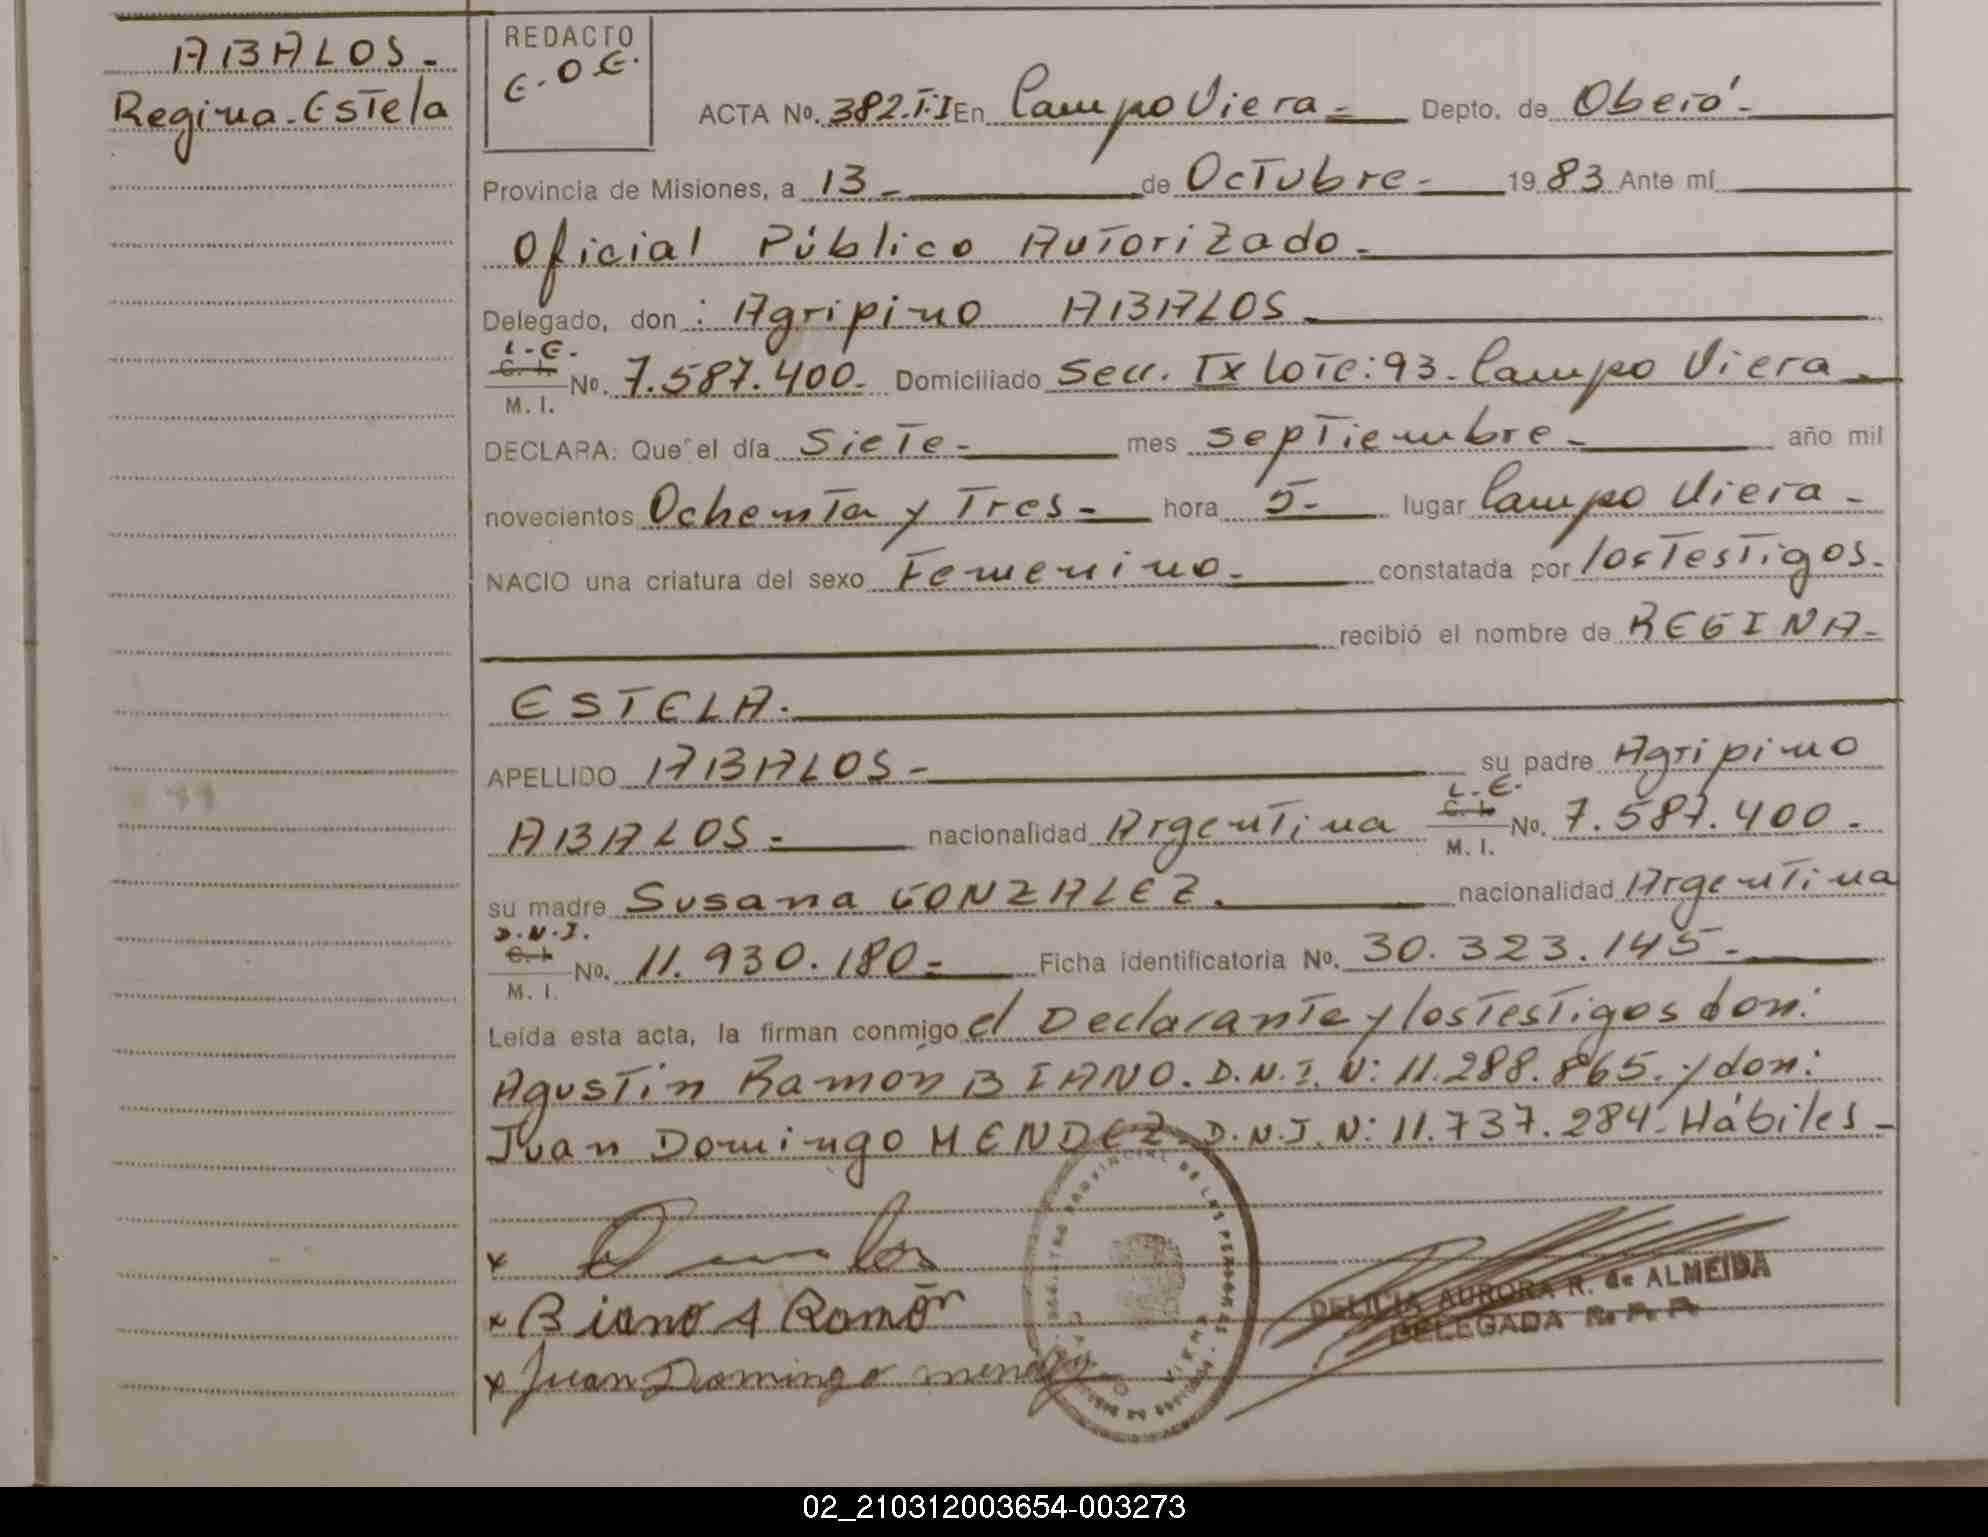 ABALOS.-
Regina-Estela
REDACTO
E.O.E.
ACTA No. 382.T.I En Campo Viera.- Depto. de Oberá.-
Provincia de Misiones, a 13.- de Octubre.- 1983 Ante mí
Oficial Público Autorizado.-
Delegado, don : Agripino ABALOS.-
L.E.
C. I.
M. I.
No. 7.587.400.- Domiciliado Secc. IX Lote: 93.- Campo Viera.-
DECLARA: Que el día Siete.- mes septiembre.- año mil
novecientos Ochenta y Tres.- hora 5.- lugar Campo Viera.-
NACIO una criatura del sexo Femenino.- constatada por los Testigos.-
recibió el nombre de REGINA-
ESTELA.-
APELLIDO ABALOS.- su padre Agripino
L.E.
ABALOS.- nacionalidad Argentina C. I. No. 7.587.400.-
M. I.
su madre Susana GONZALEZ.- nacionalidad Argentina
D.N.I.
C. I.
M. I.
No. 11.930.180.- Ficha identificatoria No. 30.323.145.-
Leída esta acta, la firman conmigo el Declarante y los Testigos don:
Agustín Ramón BIANO. D.N.I. N: 11.288.865. y don:
Juan Domingo MENDEZ. D.N.I. N: 11.737.284. Hábiles.-
x
x Biano A Ramón
x Juan Domingo mendez
PROVINCIAL DE LAS PERSONAS
VIERA
DELICIA AURORA R. de ALMEIDA
DELEGADA
02_210312003654-003273